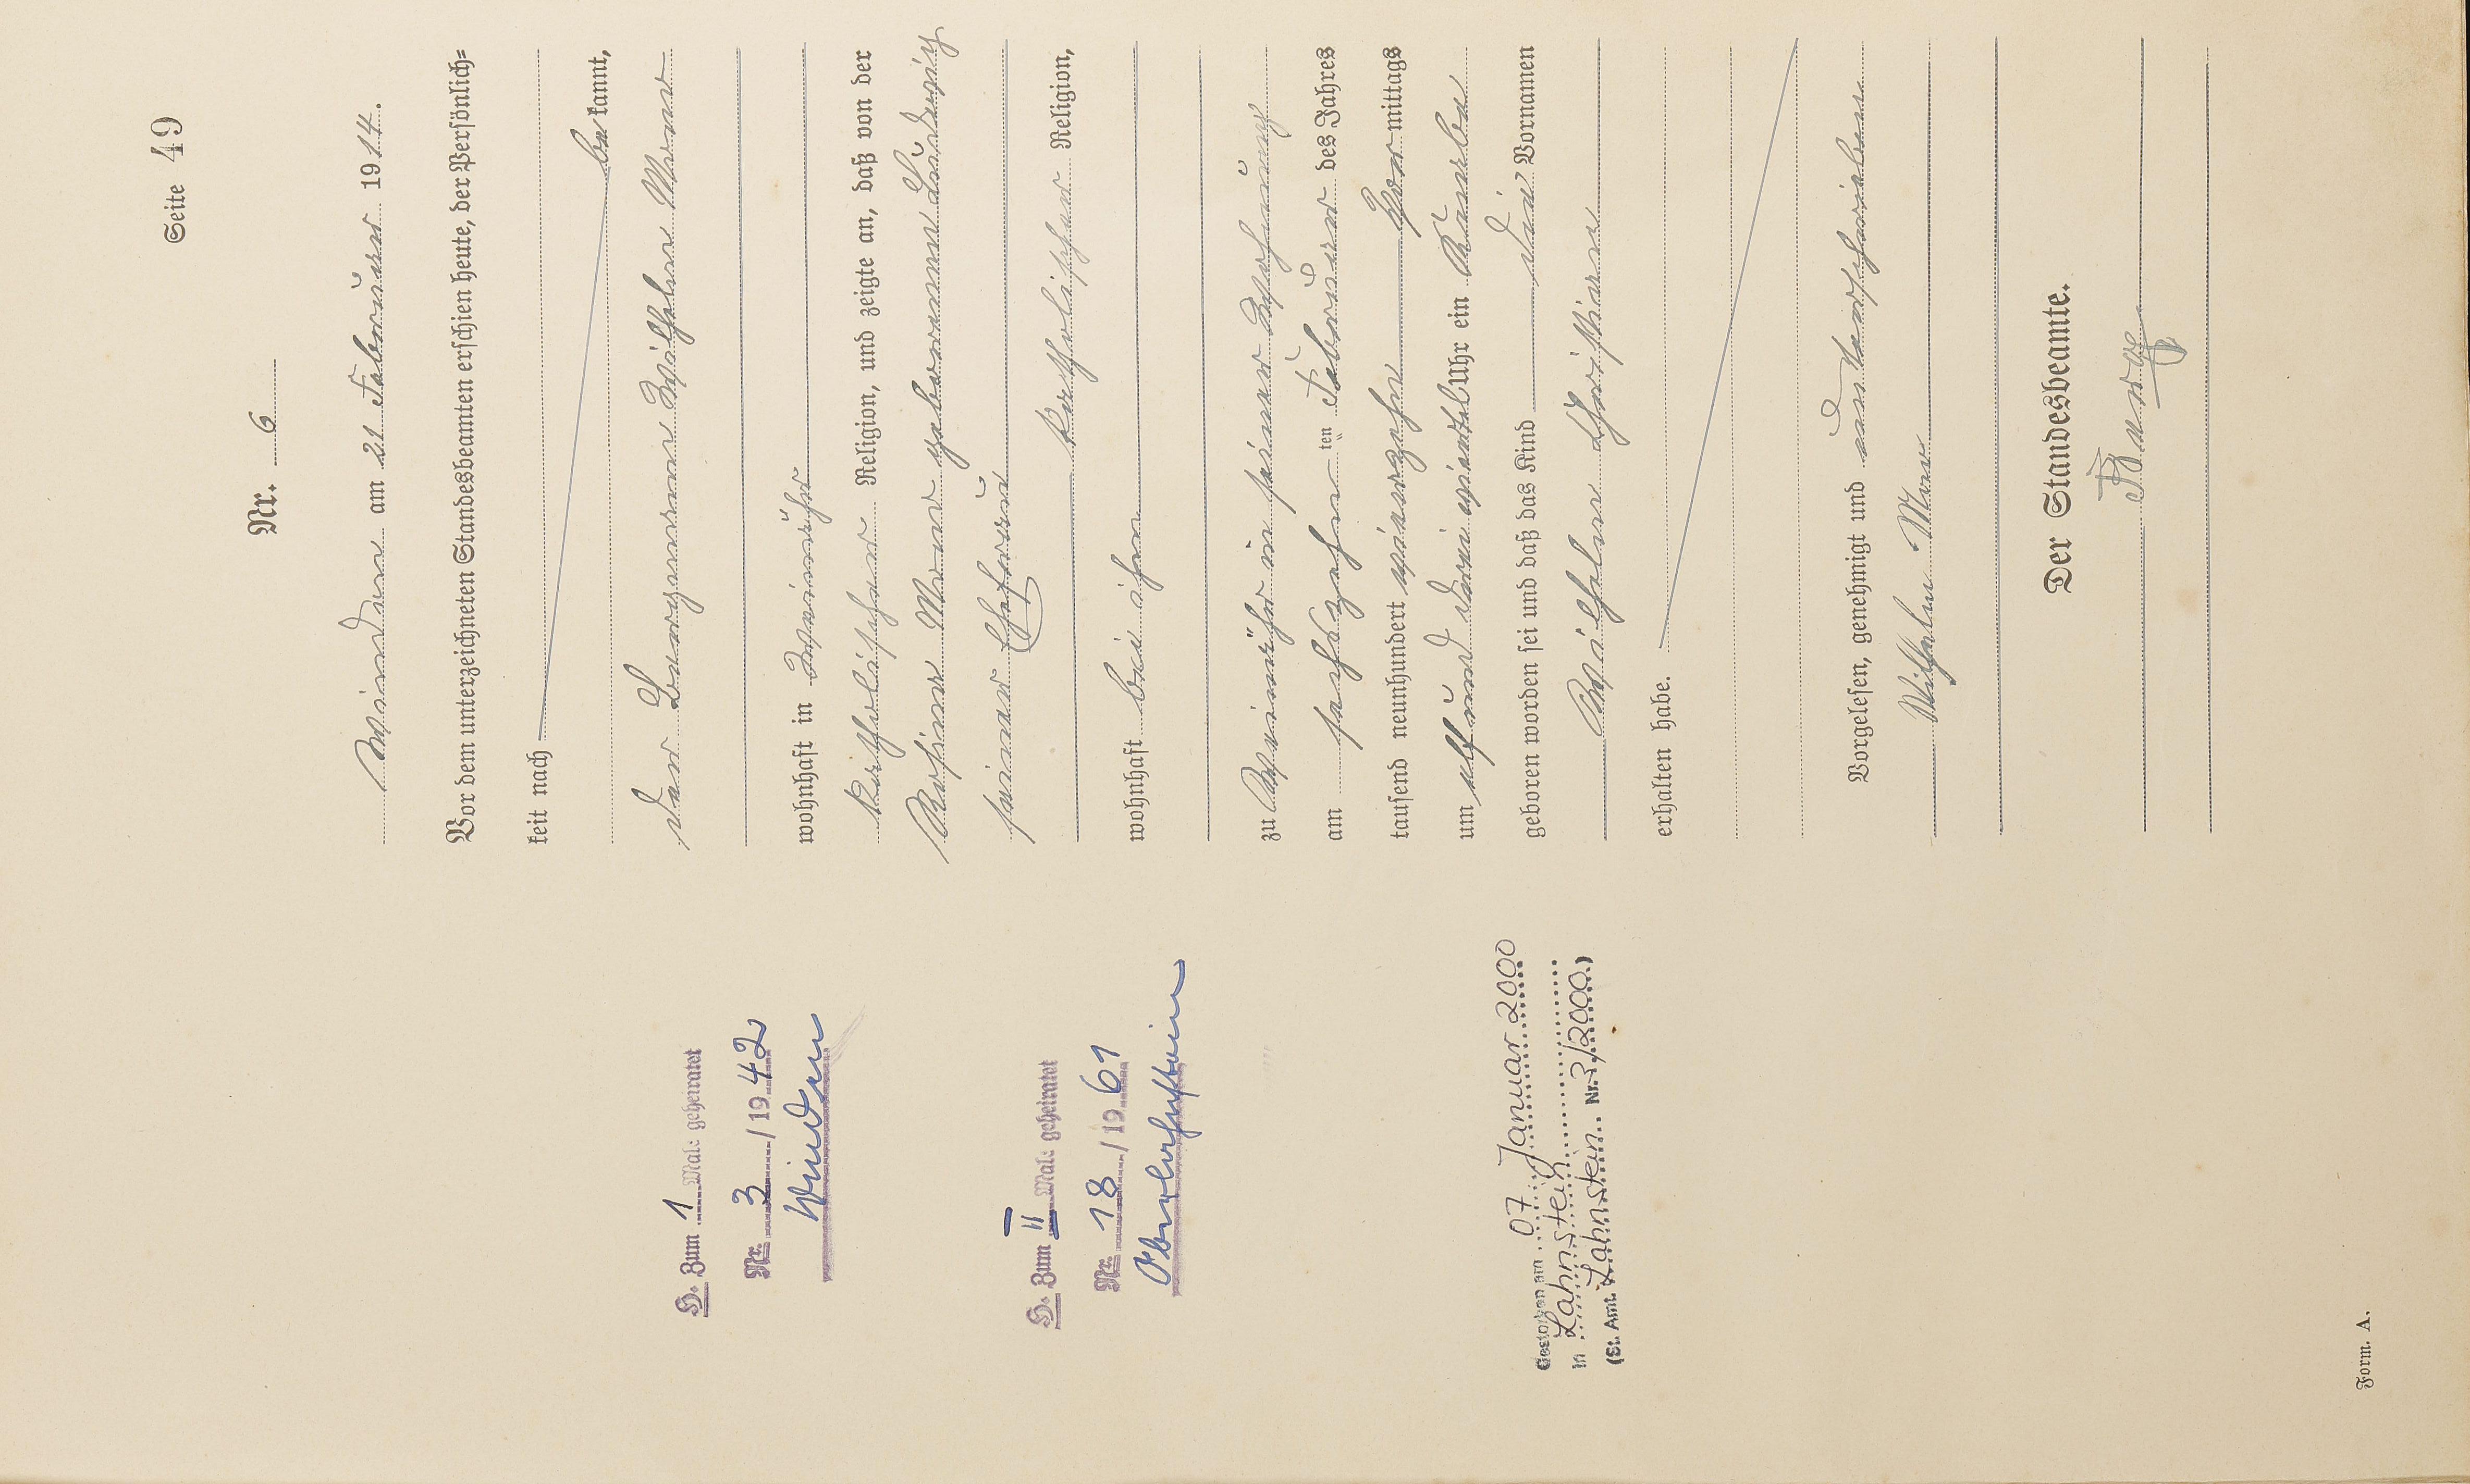 Seite 49
Nr. 6
Winden am 21 Februar 1914.
Vor dem unterzeichneten Standesbeamten erschien heute, der Persönlich=
keit nach
be kannt,
der Bergmann Wilhelm
wohnhaft in Weinähr
katholischer Religion, und zeigte an, daß von der
geborenen
seiner Ehefrau
katholischer Religion,
wohnhaft bei ihm
zu Weinähr in seiner Wohnung
am sechszehn ten Februar des Jahres
tausend neunhundert vierzehn Vor mittags
um elf und drei viertel Uhr ein Knabe
geboren worden sei und daß das Kind die Vornamen
Wilhelm Christian
erhalten habe.
Vorgelesen, genehmigt und unterschrieben
Wilhelm
Der Standesbeamte.
H. Zum 1 Male geheiratet
Nr. 3 / 19 42
Winden
H. Zum II Male geheiratet
Nr. 18 / 19 61
Oberlahnstein
Gestorben am 07. Januar 2000
in Lahnstein
(St. Amt. Lahnstein Nr. 3/2000)
Form. A.